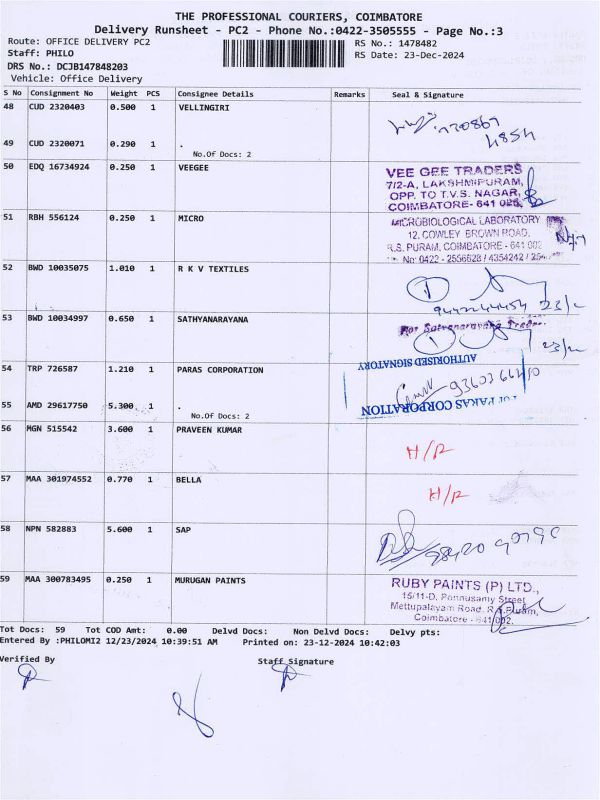 THE PROFESSIONAL COURIERS, COIMBATORE
Delivery Runsheet - PC2 - Phone No.:0422-3505555 - Page No.:3
Route: OFFICE DELIVERY PC2 RS No.: 1478482
Staff: PHILO RS Date: 23-Dec-2024
DRS No.: DCJB147848203
Vehicle: Office Delivery
S No Consignment No Weight PCS Consignee Details Remarks Seal & Signature
48 CUD 2320403 0.500 1 VELLINGIRI
49 CUD 2320071 0.290 1 .
No.Of Docs: 2
50 EDQ 16734924 0.250 1 VEEGEE
VEE GEE TRADERS
7/2-A, LAKSHMIPURAM,
OPP. TO T.V.S. NAGAR,
COIMBATORE- 641 025,
51 RBH 556124 0.250 1 MICRO
MICROBIOLOGICAL LABORATORY
12, COWLEY BROWN ROAD,
R.S. PURAM, COIMBATORE - 641 002
No: 0422 - 2556628 / 4354242 /
52 BWD 10035075 1.010 1 R K V TEXTILES
9442244454
53 BWD 10034997 0.650 1 SATHYANARAYANA
For Satyanarayana
54 TRP 726587 1.210 1 PARAS CORPORATION
AUTHORISED SIGNATORY
For PARAS CORPORATION
55 AMD 29617750 5.300 1 .
No.Of Docs: 2
56 MGN 515542 3.600 1 PRAVEEN KUMAR
H/R
57 MAA 301974552 0.770 1 BELLA
H/R
58 NPN 582883 5.600 1 SAP
59 MAA 300783495 0.250 1 MURUGAN PAINTS
RUBY PAINTS (P) LTD.,
15/11-D, Ponnusamy Street
Mettupalayam Road, R.S.Puram,
Coimbatore - 641 002.
Tot Docs: 59 Tot COD Amt: 0.00 Delvd Docs: Non Delvd Docs: Delvy pts:
Entered By :PHILOMI2 12/23/2024 10:39:51 AM Printed on: 23-12-2024 10:42:03
Verified By Staff Signature